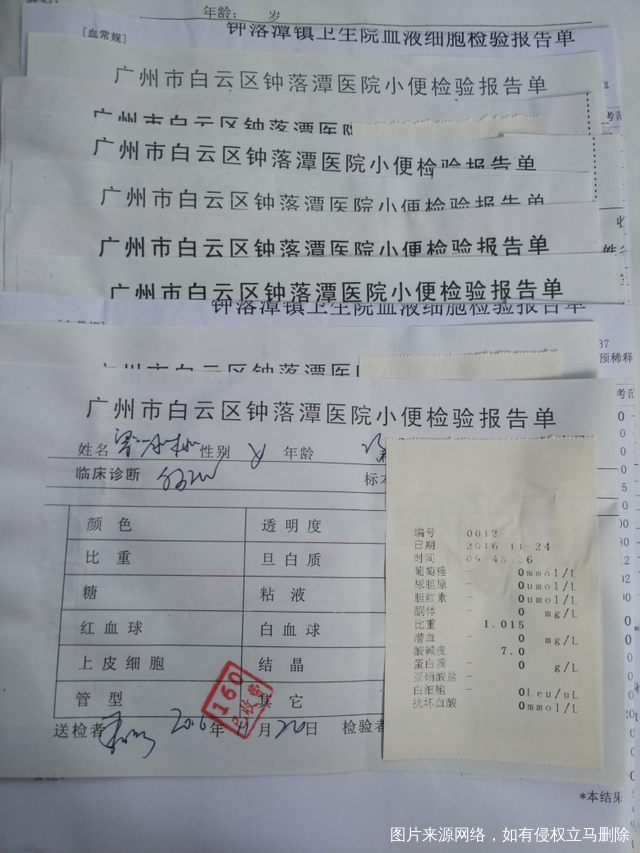 年龄： 岁
[血常规] 钟落潭镇卫生院血液细胞检验报告单
广州市白云区钟落潭医院小便检验报告单
广州市白云区钟落潭医院
广州市白云区钟落潭医院小便检验报告单
广州市白云区钟落潭医院小便检验报告单
广州市白云区钟落潭医院小便检验报告单
广州市白云区钟落潭医院小便检验报告单
钟落潭镇卫生院血液细胞检验报告单
预稀释
广州市白云区钟落潭医院
广州市白云区钟落潭医院小便检验报告单
姓名 性别 女 年龄
临床诊断 标本
颜色 透明度
比重 旦白质
糖 粘液
红血球 白血球
上皮细胞 结晶
管型 其它
160
已收费
送检者 2016年11月 日 检验者
编号 0012
日期 2016-11-24
时间
葡萄糖 - 0mmol/L
尿胆原 - 0umol/L
胆红素 - 0umol/L
酮体 - 0 mg/L
比重 1.015
潜血 - 0 mg/L
酸碱度 7.0
蛋白质 - 0 g/L
亚硝酸盐 -
白细胞 - 0Leu/uL
抗坏血酸 - 0mmol/L
*本结果
图片来源网络，如有侵权立马删除